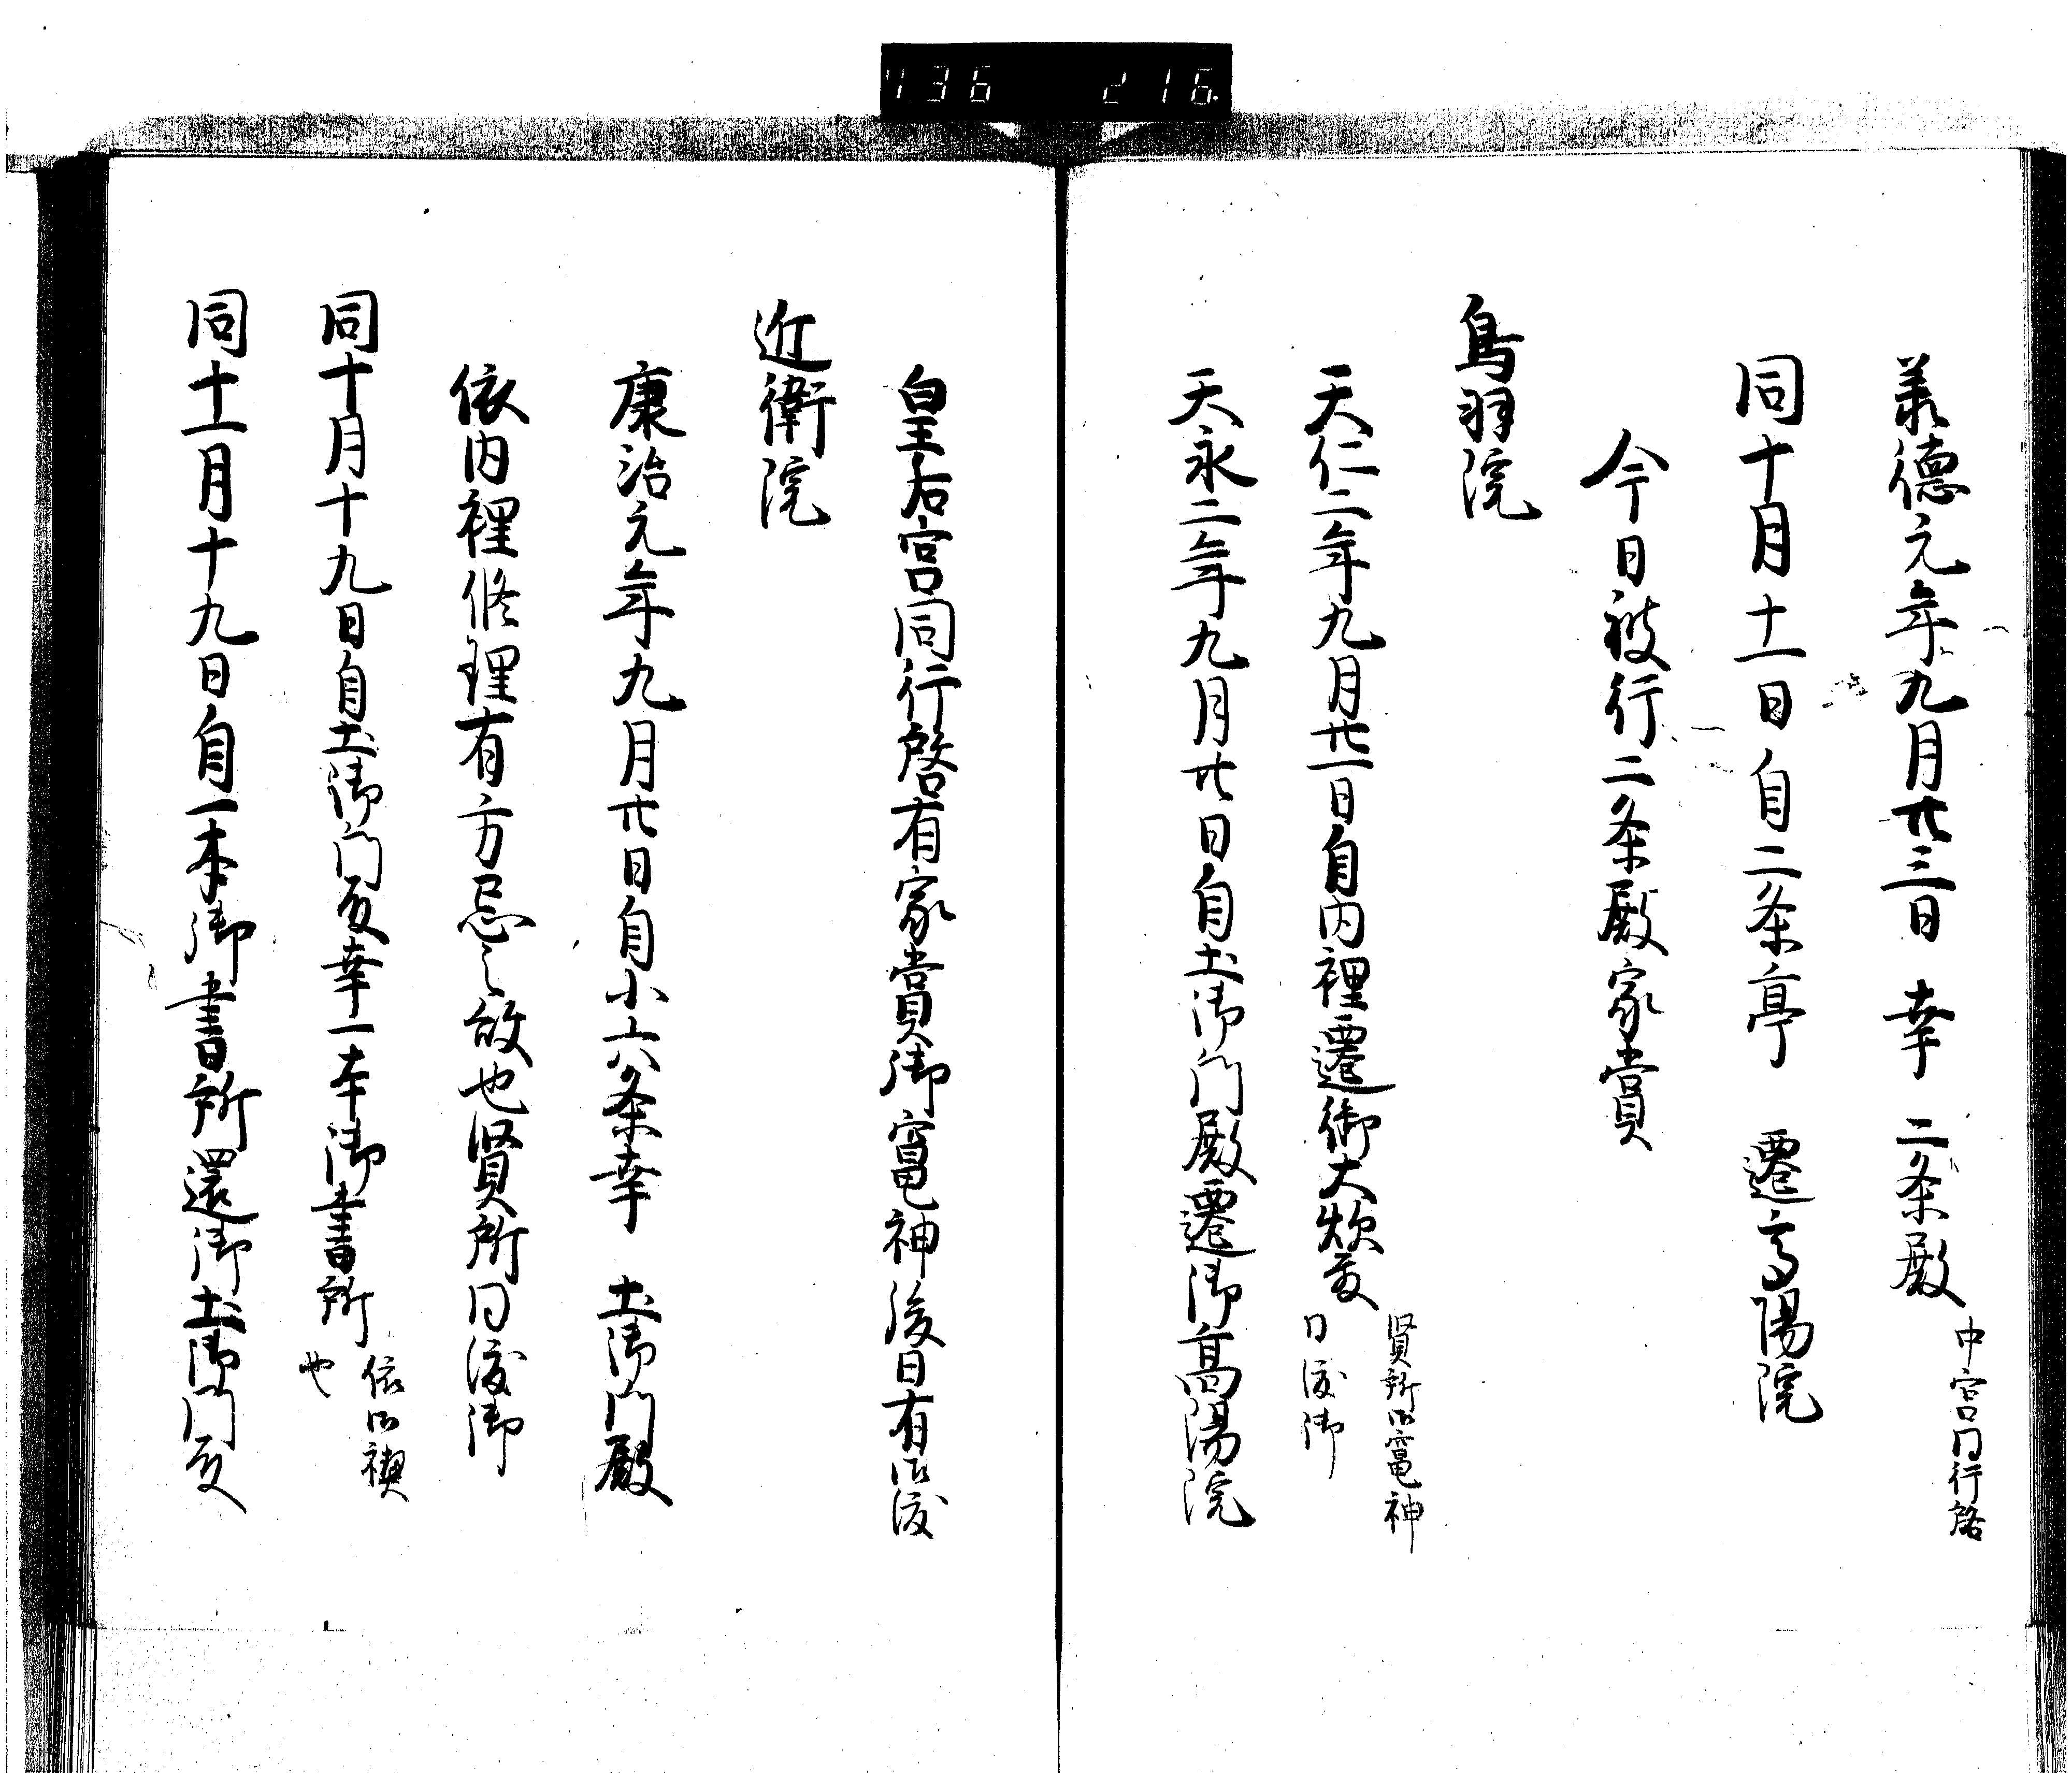 436 216
承徳元年九月廿三日 幸 二条殿 中宮同行啓
同十月十一日自二条亭 遷高陽院
今日被行二条殿家賞
鳥羽院
天仁二年九月廿一日自内裡遷御大炊殿 賢所御竃神同渡御
天永二年九月廿日自土御門殿遷御高陽院
皇后宮同行啓有家賞御竃神後日有御渡
近衛院
康治元年九月廿日自小六条幸 土御門殿
依内裡修理有方忌之故也賢所同渡御
同十月十九日自土御門殿幸一本御書所 依御禊也
同十一月十九日自一本御書所還御土御門殿